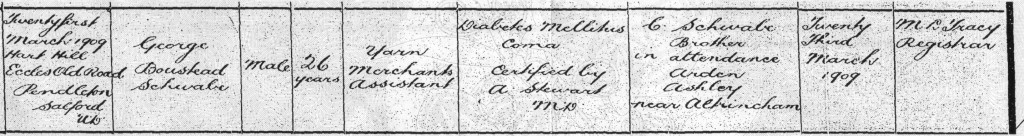 Twenty first
March 1909
Hart Hill
Eccles Old Road
Pendleton
Salford
UD
George
Boustead
Schwabe
Male
26
years
Yarn
Merchants
Assistant
Diabetes Mellitus
Coma
Certified by
A Stewart
MD
C. Schwabe
Brother
in attendance
Arden
Ashley
near Altrincham
Twenty
Third
March
1909
M D Tracy
Registrar